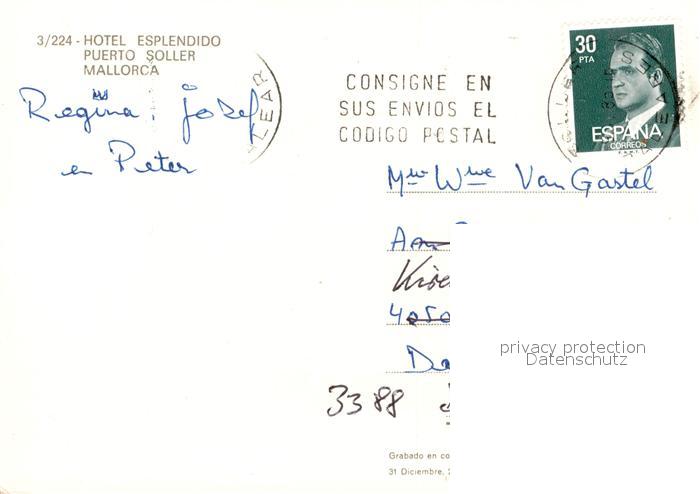 3/224 - HOTEL ESPLENDIDO
PUERTO SOLLER
MALLORCA
Regina, Jozef
en Peter
CONSIGNE EN
SUS ENVIOS EL
CODIGO POSTAL
30
PTA
ESPAÑA
CORREOS
Mw Wwe Van Gastel
4050
privacy protection
Datenschutz
3388
Grabado en co
31 Diciembre,